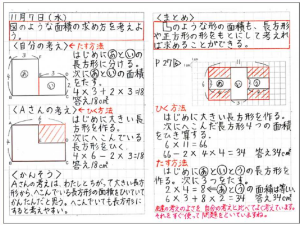 11月7日(水)
図のような形の面積の求め方を考えよう。
〈自分の考え〉たす方法
はじめにあといの
長方形に分ける。
次にあといの面積
をたす。
4×3+2×3=18
答え18㎠
〈Aさんの考え〉ひく方法
はじめに大きい長
方形を作る。
次にへこんでいる
長方形をひく。
4×6-2×3=18
答え18㎠
〈かんそう〉
Aさんの考えは、わたしとちがって大きい長方
形から、へこんでいる長方形の面積をひいてい
てかんたんだと思う。へこんでいても長方形に
すると考えやすい。
〈まとめ〉
のような形の面積も、長方形
や正方形の形をもとにして考えれ
ば求めることができる。
P27
ひく方法
はじめに大きい長方形を作る。
次にへこんだ長方形4つの面積
をひき算する。
6×11=66
66-2×4×4=34 答え34㎠
たす方法
はじめにあといとうの長方形
を作る。次に3つをたす。
2×4=8 あとうの面積は等しい
6×3+8×2=34 答え34㎠